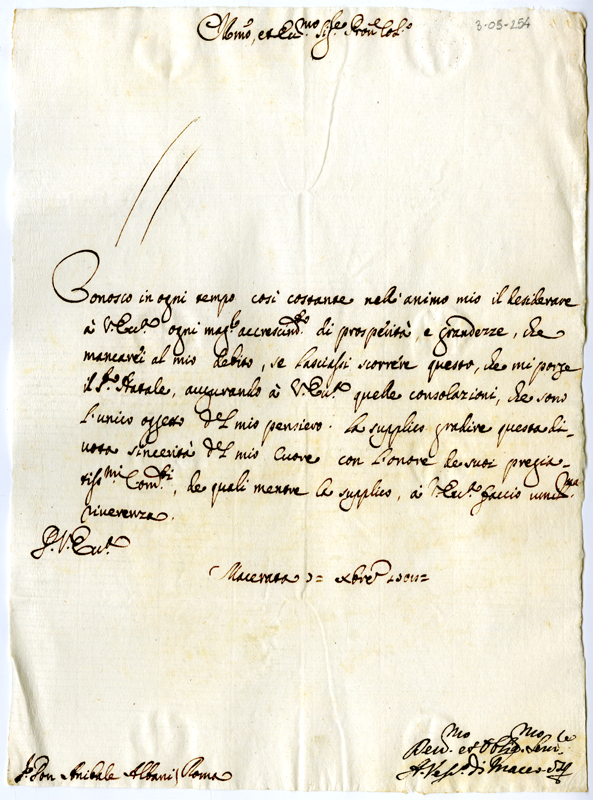 Ill.mo, et Ecc.mo Sig.re Pron Col.mo
3-03-254
Conosco in ogni tempo così costante nell'animo mio il desiderare
à V. Ecc.a ogni mag.r accrescim.to di prosperità, e grandezze, che
mancarei al mio debito, se lasciassi scorrere questo, che mi porge
il S.to Natale, augurando à V. Ecc.a quelle consolazioni, che sono
l'unico oggetto del mio pensiero. La supplico gradire questa di-
uota sincerità del mio Cuore con l'onore de suoi pregia-
tiss.mi Com.di, de quali mentre la supplico, à V. Ecc.a faccio umil.ma
riuerenza.
D. V. Ecc.a
Macerata Xbre
Deu.mo et Obblig.mo Seru.re
A. Vesc.o di Macer.ta
S.r Don Anibale Albani / Roma